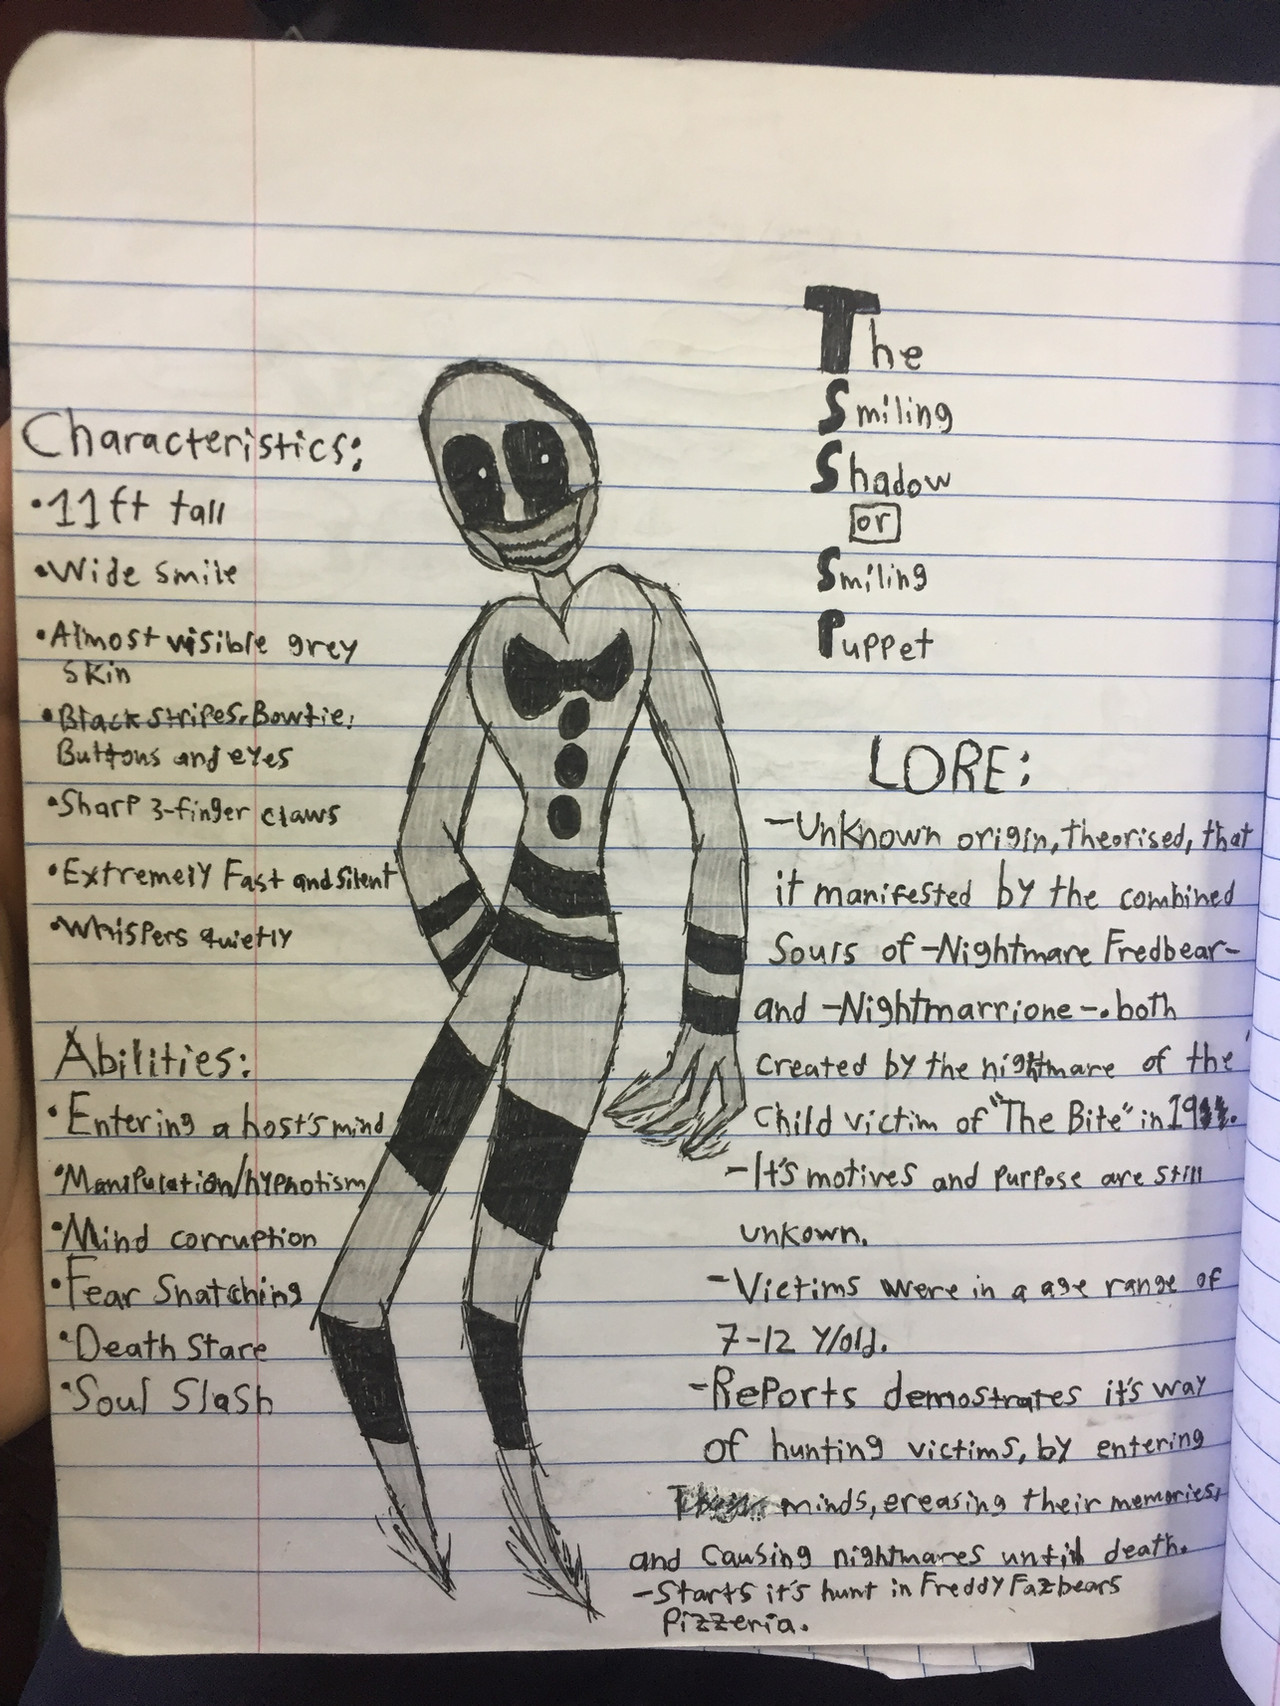 The
Smiling
Shadow
or
Smiling
Puppet
Characteristics:
•11ft tall
•Wide smile
•Almost visible grey
skin
•Black stripes, Bowtie,
Buttons and eyes
•Sharp 3-finger claws
•Extremely Fast and silent
•Whispers quietly
Abilities:
•Entering a host's mind
•Manipulation/hypnotism
•Mind corruption
•Fear Snatching
•Death Stare
•Soul Slash
LORE:
-Unknown origin, theorised, that
it manifested by the combined
Souls of -Nightmare Fredbear-
and -Nightmarrione-. both
created by the nightmare of the
Child victim of "The Bite" in 19
-It's motives and purpose are still
unkown.
-Victims were in a age range of
7-12 Y/old.
-Reports demostrates it's way
of hunting victims, by entering
Their minds, ereasing their memories,
and causing nightmares until death.
-Starts it's hunt in Freddy Fazbears
Pizzeria.